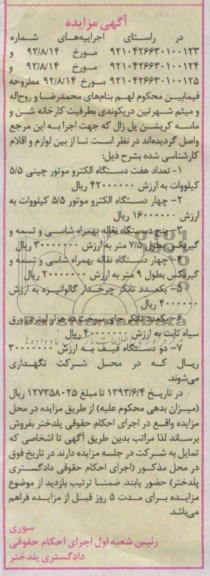 آگهی مزایده
در راستای اجراییه‌های شماره
۹۲۱۰۴۲۶۶۳۰۱۰۰۱۲۳ مورخ ۹۲/۸/۱۴ و
۹۲۱۰۴۲۶۶۳۰۱۰۰۱۲۴ مورخ ۹۲/۸/۱۴ و
۹۲۱۰۴۲۶۶۳۰۱۰۰۱۲۵ مورخ ۹۲/۸/۱۴ مطروحه
فیمابین محکوم لهم بنام‌های محمدرضا و روح‌اله
و میثم شهرتین دریکوندی بظرفیت کارخانه شن و
ماسه کریشن پل زال که جهت اجرا به این مرجع
واصل گردیده‌اند در نظر است تا از بین لوازم و اقلام
کارشناسی شده بشرح ذیل:
۱- تعداد هفت دستگاه الکترو موتور چینی ۵/۵
کیلووات به ارزش ۴۲۰۰۰۰۰۰ ریال
۲- چهار دستگاه الکترو موتور ۵/۵ کیلووات به
ارزش ۱۶۰۰۰۰۰۰ ریال
۳- پنج دستگاه نقاله بهمراه شاسی و تسمه و
گیربکس بطول ۷/۵ متر به ارزش ۳۰۰۰۰۰۰۰ ریال
۴- چهار دستگاه نقاله بهمراه شاسی و تسمه و
گیربکس بطول ۹ متر به ارزش ۲۰۰۰۰۰۰۰ ریال
۵- یکعدد تانکر چرخدار گالوانیزه به ارزش
۴۰۰۰۰۰۰ ریال
۶- یکعدد تانکر جای سوخت ده هزار لیتری ورق
سیاه ثابت به ارزش ریال
۷- دو دستگاه قیف به ارزش ۳۰۰۰۰۰۰۰
ریال که در محل شرکت نگهداری
می‌شوند.
در تاریخ ۱۳۹۳/۶/۴ تا مبلغ ۱۲۷۳۵۸۰۲۵ ریال
(میزان بدهی محکوم علیه) از طریق مزایده در محل
مزایده واقع در اجرای احکام حقوقی پلدختر بفروش
برساند لذا مراتب بدین طریق آگهی تا اشخاصی که
تمایل به شرکت در جلسه مزایده دارند در تاریخ فوق
در محل مذکور (اجرای احکام حقوقی دادگستری
پلدختر) حضور یابند ضمنا ترتیب بازدید از موضوع
مزایده برای مدت ۵ روز قبل از مزایده فراهم
می‌باشد.
سوری
رئیس شعبه اول اجرای احکام حقوقی
دادگستری پلدختر